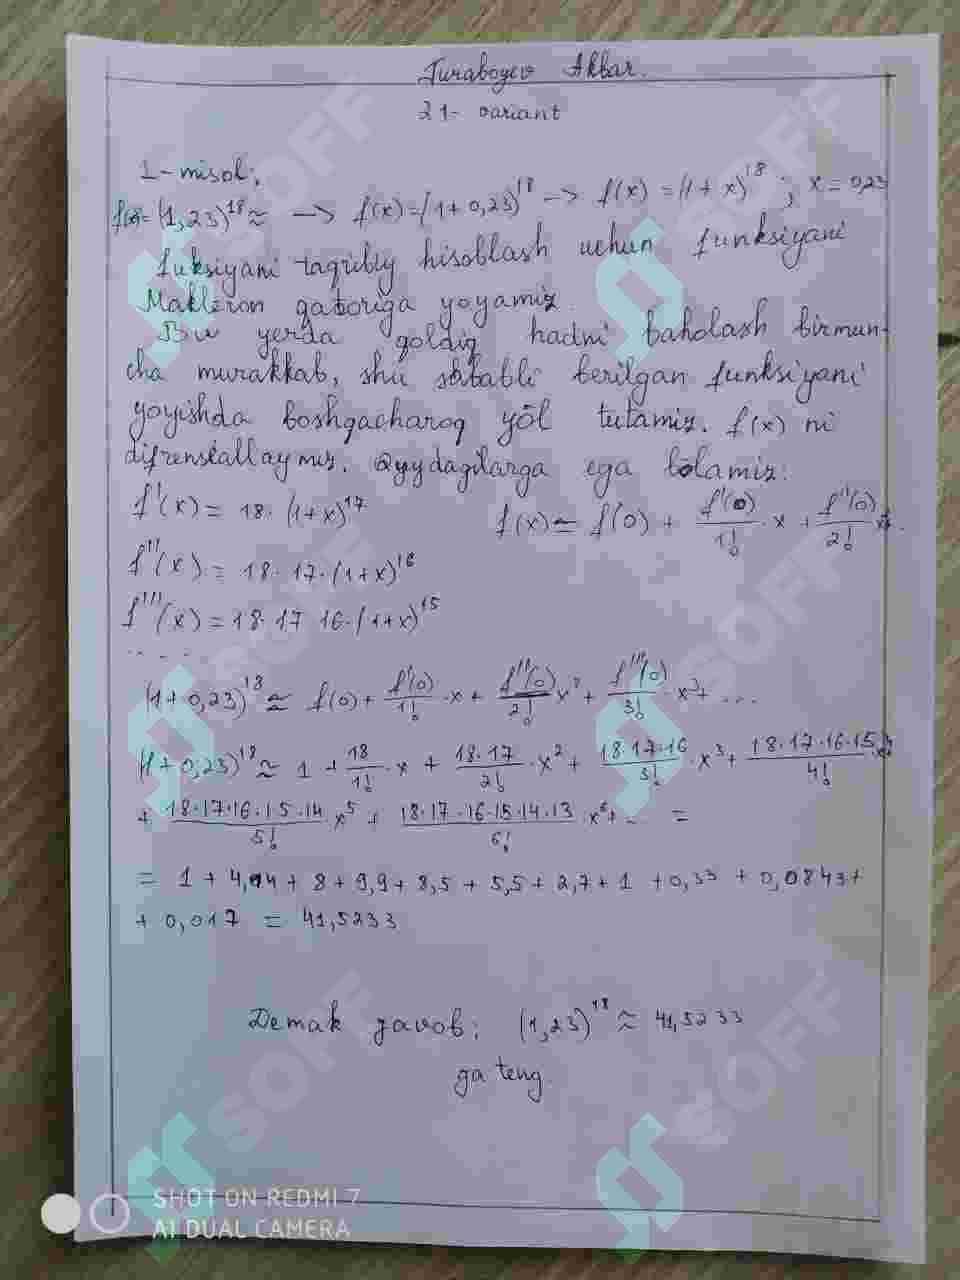 Turaboyev Akbar.
21- variant
1-misol;
f(x)=(1,23)^18 ≈ -> f(x)=(1+0,23)^18 -> f(x)=(1+x)^18 ; x=0,23
fuksiyani taqribiy hisoblash uchun funksiyani
Makleron qatoriga yoyamiz.
Bu yerda qoldiq hadni baholash birmun-
cha murakkab, shu sababli berilgan funksiyani
yoyishda boshqacharoq yöl tutamiz. f(x) ni
difrensiallaymiz. Quydagilarga ega bolamiz:
f'(x) = 18·(1+x)^17
f(x) ≈ f(0) + f'(0)/1! · x + f''(0)/2! x^2.
f''(x) = 18·17·(1+x)^16
f'''(x) = 18·17 16·(1+x)^15
.....
(1+0,23)^18 ≈ f(0) + f'(0)/1! · x + f''(0)/2! x^2 + f'''(0)/3! x^3 + ...
(1+0,23)^18 ≈ 1 + 18/1! · x + 18·17/2! · x^2 + 18·17·16/3! · x^3 + 18·17·16·15/4! x^4
+ 18·17·16·15·14/5! · x^5 + 18·17·16·15·14·13/6! · x^6 + .. =
= 1 + 4,14 + 8 + 9,9 + 8,5 + 5,5 + 2,7 + 1 + 0,33 + 0,0843 +
+ 0,017 = 41,5233
Demak javob; (1,23)^18 ≈ 41,5233
ga teng.
SHOT ON REDMI 7
AI DUAL CAMERA
SOFF
SOFF
SOFF
SOFF
SOFF
SOFF
SOFF
SOFF